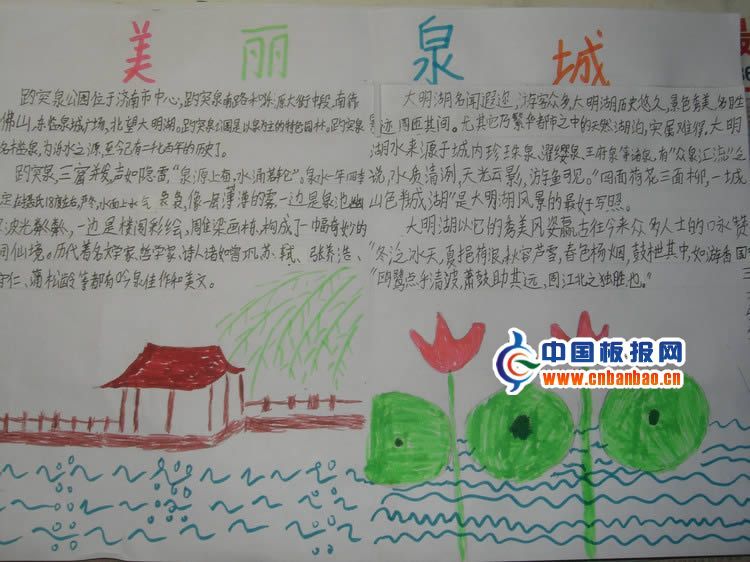 美丽泉城
趵突泉公园位于济南市中心,趵突泉南路和泺源大街中段,南靠
佛山,东临泉城广场,北望大明湖。趵突泉公园是以泉为主的特色园林。趵突泉
名胜泉,为泺水之源,至今已有二千七百年的历史了。
趵突泉,三窟并发,声如隐雷,“泉源上奋,水涌若轮”。泉水一年四季
定在摄氏18度左右,严冬,水面上水气袅袅,像一层薄薄的雾,一边是泉池幽
波光粼粼,一边是楼阁彩绘,雕梁画栋,构成了一幅奇妙的
间仙境。历代著名文学家、哲学家、诗人诸如曾巩、苏轼、张养浩、
守仁、蒲松龄等都有吟泉佳作和美文。
大明湖名闻遐迩,游客众多,大明湖历史悠久,景色秀美,名胜
迹周匝其间。尤其它乃繁华都市之中的天然湖泊,实属难得,大明
湖水来源于城内珍珠泉、濯缨泉、王府泉等诸泉,有“众泉汇流”之
说,水质清冽,天光云影,游鱼可见。“四面荷花三面柳,一城
山色半城湖”是大明湖风景的最好写照。
大明湖以它的秀美风姿赢古往今来众多人士的咏赞
“冬泛冰天,夏挹荷浪,秋容芦雪,春色杨烟,鼓枻其中,如游香国
“鸥鹭点乎清波,萧鼓助其远,固江北之独胜也。”
中国板报网
www.cnbanbao.cn